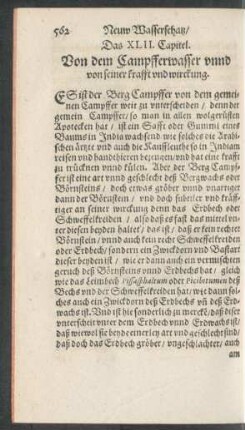 562 Neuw Wasserschatz/
Das XLII. Capitel.
Von dem Campfferwasser vnnd
von seiner krafft vnd wirckung.
ES ist der Berg Campffer von dem gemei-
nen Campffer weit zu vnterscheiden / denn der
gemein Campffer / so man in allen wolgerüsten
Apotecken hat / ist ein Safft oder Gummi eines
Baums in India wachsend wie solches die Arabi-
schen ärtzte vnd auch die Kauffleuthe so in Indiam
reisen vnd handthieren bezeugen / vnd hat eine krafft
zu trücknen vnnd külen. Aber der Berg Campf-
fer ist eine art vnnd geschlecht deß Bergwachs oder
Börnsteins / doch etwas gröber vnnd vnartiger
dann der Börnstein / vnd doch subtiler vnd kräff-
tiger an seiner wirckung denn das Erdbech oder
Schweffelkreiden / also daß es fast das mittel vn-
ter diesen beyden haltet / das ist / daß er kein rechter
Börnstein / vnnd auch kein recht Schweffelkreiden
oder Erdbech / sondern ein Zwickdorn vnd Bastart
dieser beyden ist / wie er dann auch ein vermischten
geruch deß Börnsteins vnnd Erdbechs hat / gleich
wie das heimbech Pissasphaltum oder Picibitumen deß
Bechs vnd der Schweffelkreiden hat / wie dann sol-
ches auch ein Zwickdorn deß Erdbechs vñ deß Erd-
wachs ist. Vnd ist hie sonderlich zu mercken / daß dieser
vnterscheit vnter dem Erdbech vnnd Erdwachs ist /
daß wiewol sie beyde einerley art vnd geschlecht sind /
daß doch das Erdbech gröber / vngeschlachter / auch
am